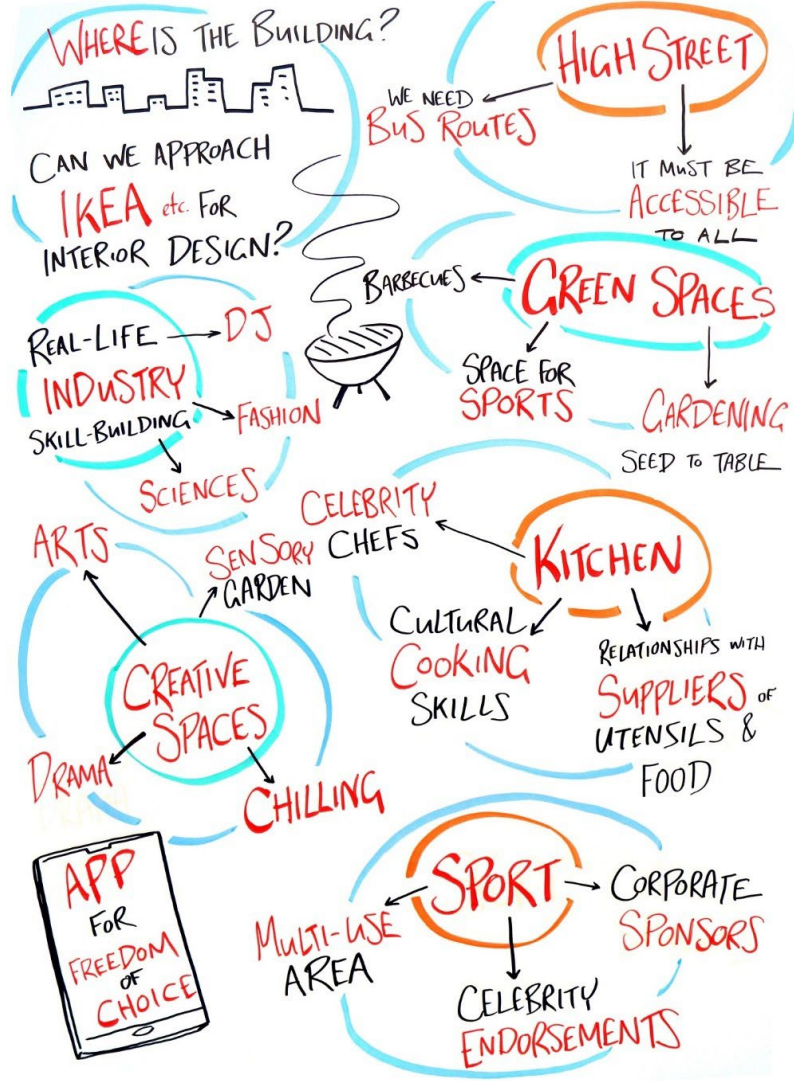 WHERE IS THE BUILDING?
CAN WE APPROACH
IKEA etc. FOR
INTERIOR DESIGN?
HIGH STREET
WE NEED
BUS ROUTES
IT MUST BE
ACCESSIBLE
TO ALL
GREEN SPACES
BARBECUES
SPACE FOR
SPORTS
GARDENING
SEED TO TABLE
REAL-LIFE
INDUSTRY
SKILL-BUILDING
DJ
FASHION
SCIENCES
KITCHEN
CELEBRITY
CHEFS
CULTURAL
COOKING
SKILLS
RELATIONSHIPS WITH
SUPPLIERS OF
UTENSILS &
FOOD
CREATIVE
SPACES
ARTS
SENSORY
GARDEN
DRAMA
CHILLING
APP
FOR
FREEDOM
OF
CHOICE
SPORT
MULTI-USE
AREA
CELEBRITY
ENDORSEMENTS
CORPORATE
SPONSORS